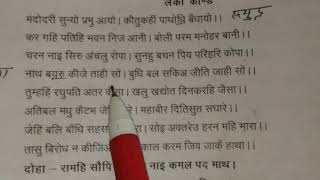 लंका काण्ड
मंदोदरी सुन्यो प्रभु आयो। कौतुकहीं पाथोधि बँधायो।।
समुद्र
कर गहि पतिहि भवन निज आनी। बोली परम मनोहर बानी।
चरन नाइ सिरु अंचलु रोपा। सुनहु बचन पिय परिहरि कोपा।।
नाथ बयरु कीजे ताही सों। बुधि बल सकिअ जीति जाही सों।।
तुम्हहि रघुपति अंतर कैसा। खलु खद्योत दिनकरहि जैसा।।
अतिबल मधु कैटभ जेहिं महाबीर दितिसुत संघारे।।
जेहिं बलि बाँधि सहस सोइ अवतरेउ हरन महि भारा।।
तासु बिरोध न कीजिअ काल करम जिव जाकें हाथा।।
दोहा – रामहि सौपि नाइ कमल पद माथ।